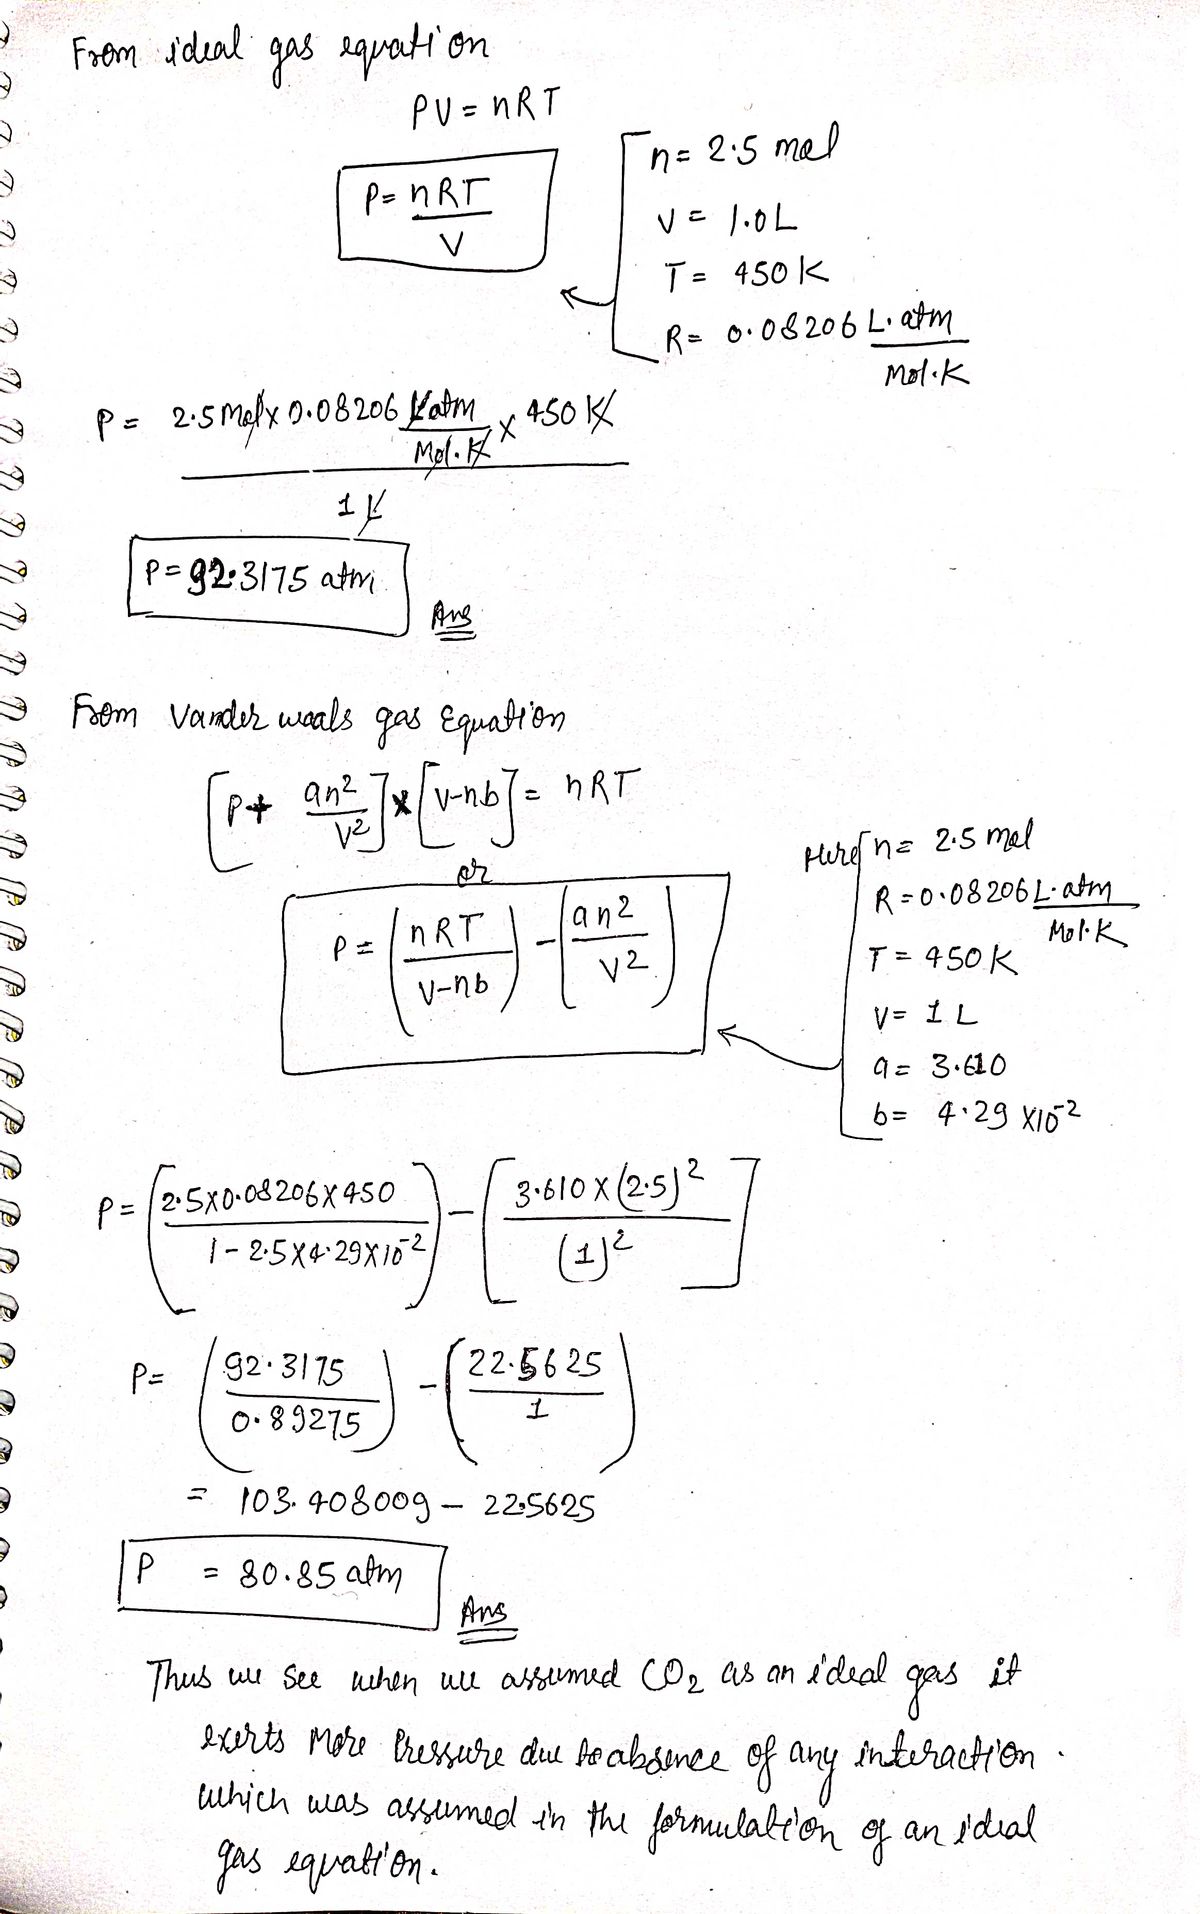 From ideal gas equation
PV = nRT
P = nRT / V
n = 2.5 mol
V = 1.0 L
T = 450 K
R = 0.08206 L.atm / Mol.K
P = 2.5 Mol x 0.08206 L atm / Mol.K x 450 K / 1 L
P = 92.3175 atm
Ans
From Vander waals gas Equation
[P + an² / V²] x [V-nb] = nRT
or
P = (nRT / V-nb) - (an² / V²)
Here n = 2.5 mol
R = 0.08206 L.atm / Mol.K
T = 450 K
V = 1 L
a = 3.610
b = 4.29 X10⁻²
P = (2.5X0.08206X450 / 1 - 2.5X4.29X10⁻²) - [3.610 X (2.5)² / (1)²]
P = (92.3175 / 0.89275) - (22.5625 / 1)
= 103.408009 - 22.5625
P = 80.85 atm
Ans
Thus we see when we assumed CO₂ as an ideal gas it
exerts More Pressure due to absence of any interaction.
which was assumed in the formulation of an ideal
gas equation.